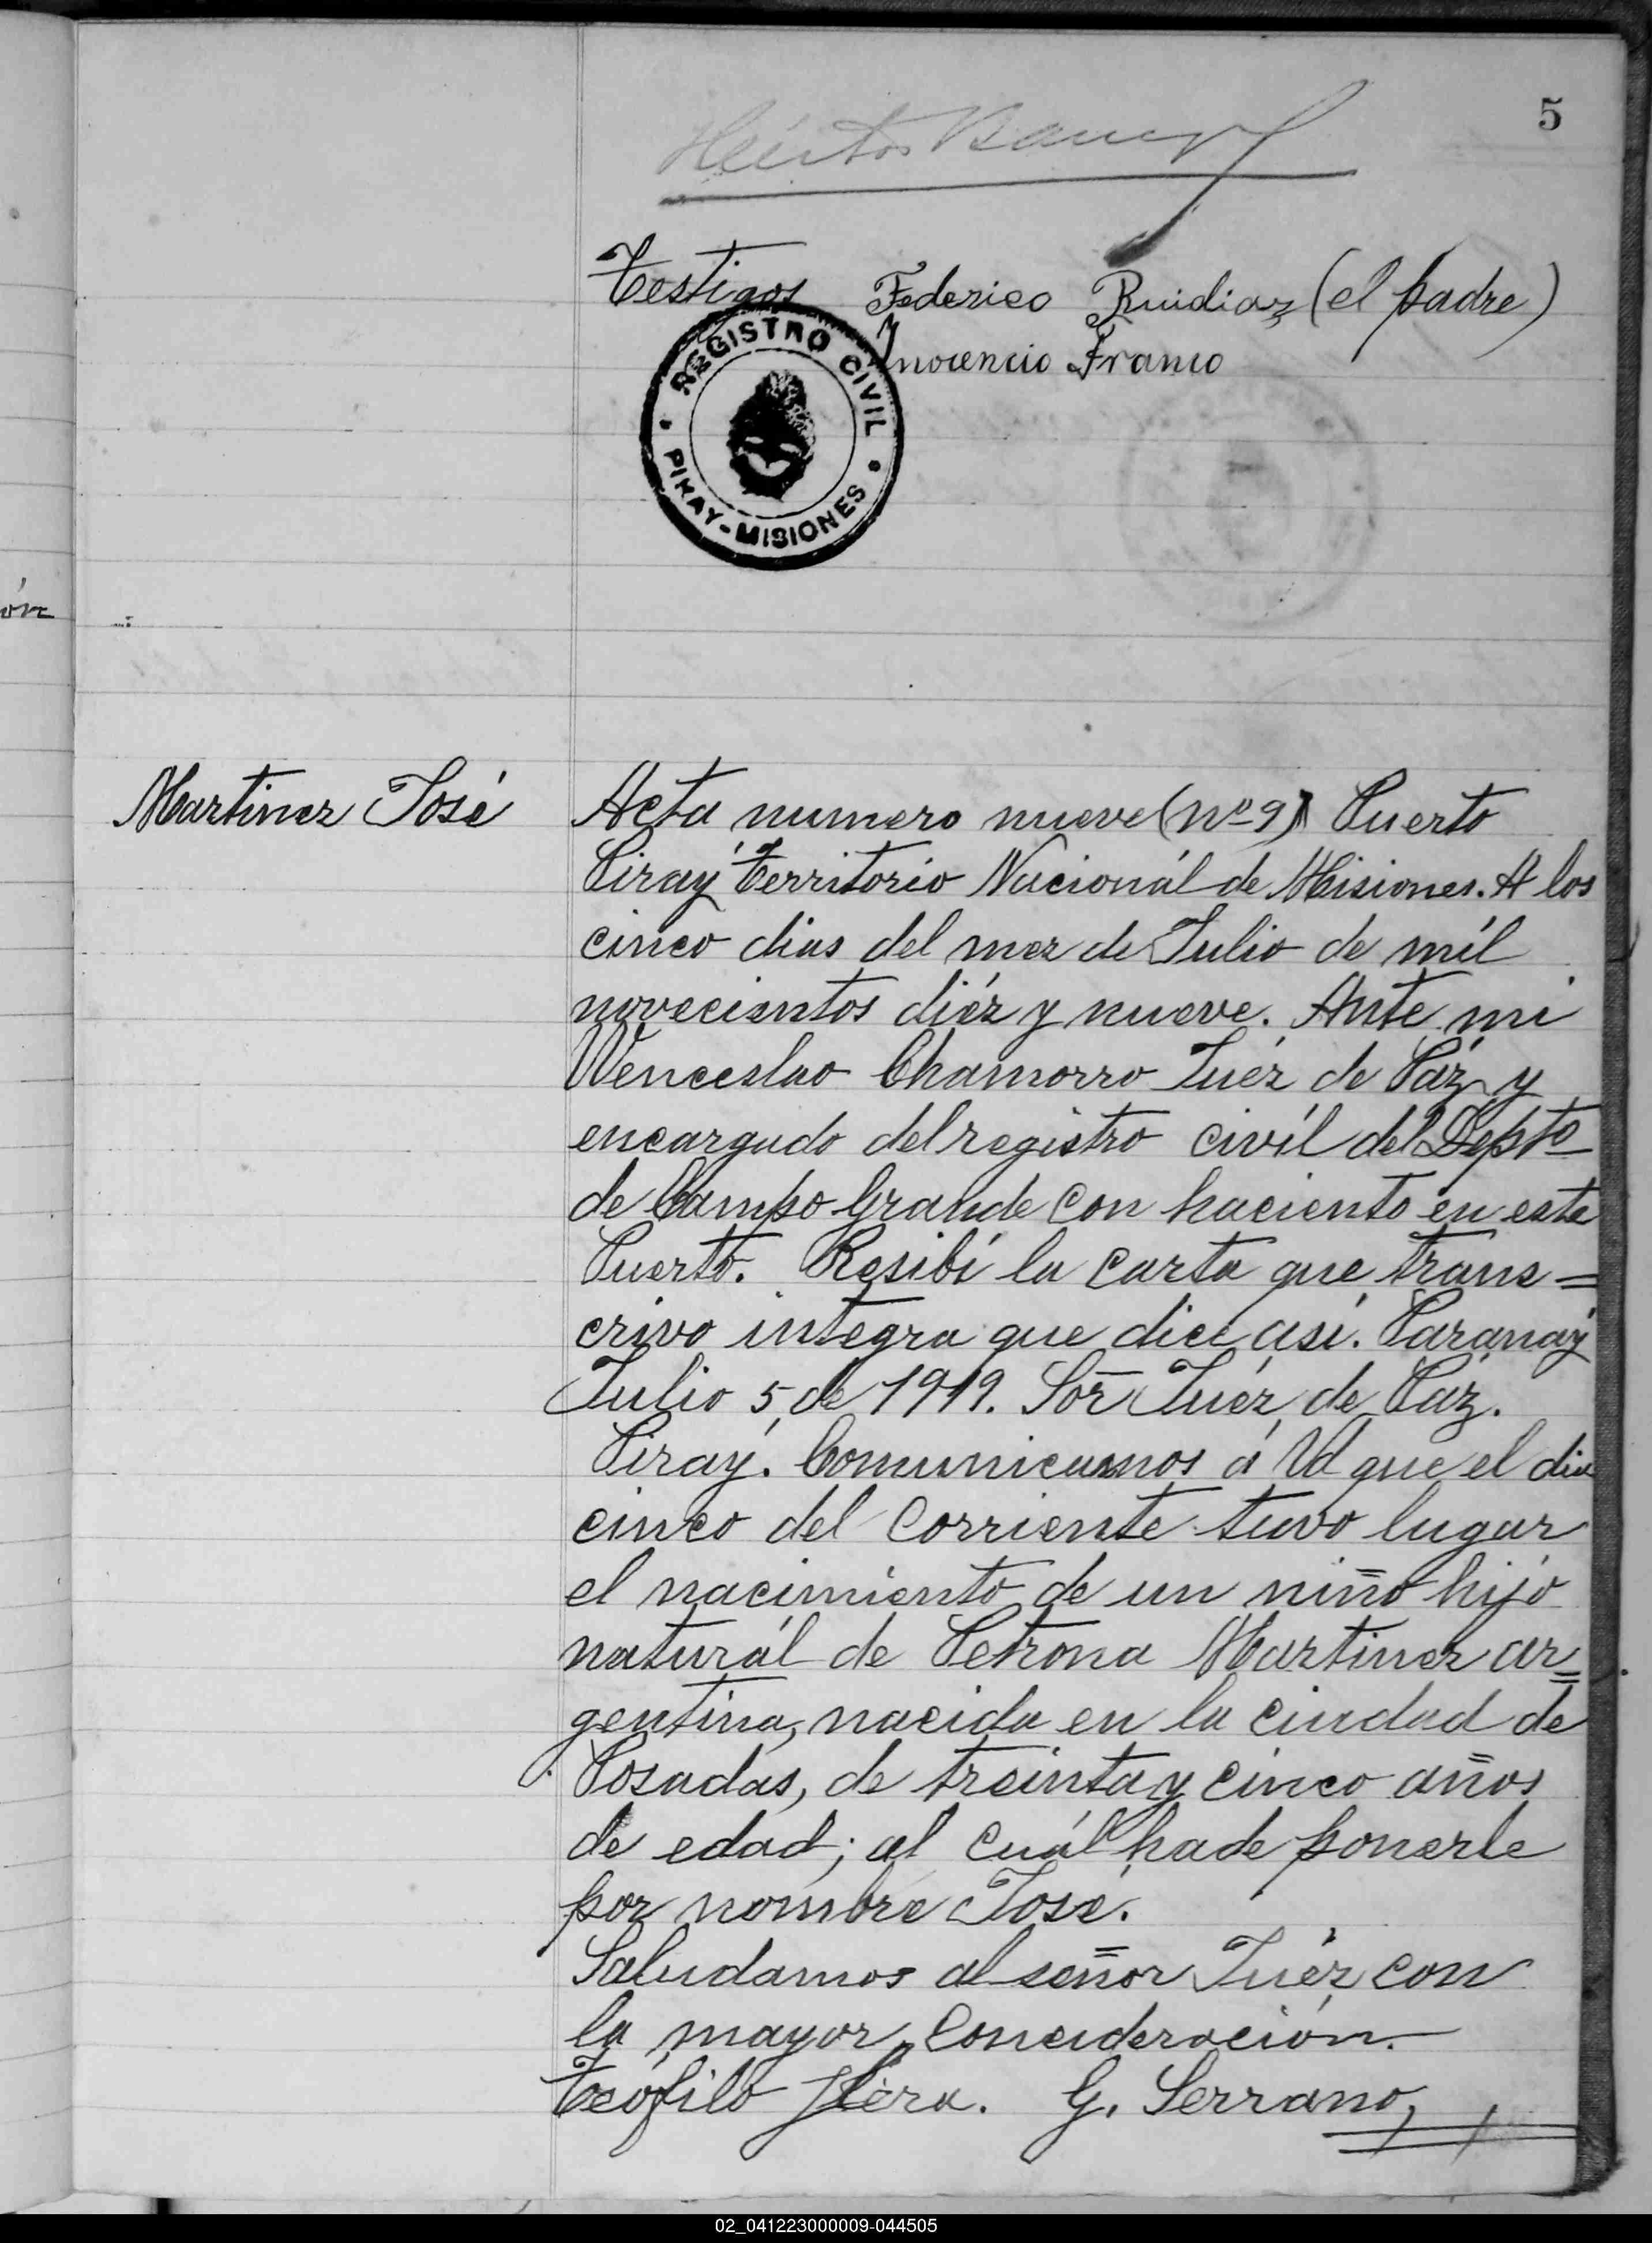 5
Testigos Federico Ruidiaz (el padre)
Inocencio Franco
REGISTRO CIVIL
PIRAY - MISIONES
ón
Martinez José
Acta numero nueve (nº 9) Puerto
Piráy Territorio Nacionál de Misiones. A los
cinco dias del mez de Julio de míl
novecientos diéz y nueve. Ante mi
Wenceslao Chamorro Juéz de Páz y
encargado del registro civíl del Depto
de Campo Grande con haciento en este
Puerto. Resibí la carta que trans=
crivo integra que dice así. Paranáy
Julio 5 de 1919. Sor Juéz de Páz.
Piráy. Comunicamos á Vd que el dia
cinco del corriente tuvo lugar
el nacimiento de un niño hijo
naturál de Petrona Martinez ar=
gentina, nacida en la ciudad de
Posadas, de treinta y cinco años
de edad; al cuál ha de ponerle
por nombre José.
Saludamos al señor Juéz con
la mayor concideración.
Teófilo G. Serrano,
02_041223000009-044505